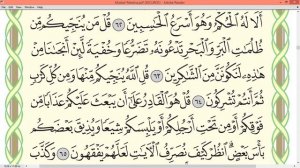 أَلَا لَهُ ٱلْحُكْمُ وَهُوَ أَسْرَعُ ٱلْحَٰسِبِينَ ٦٢ قُلْ مَن يُنَجِّيكُم مِّن
ظُلُمَٰتِ ٱلْبَرِّ وَٱلْبَحْرِ تَدْعُونَهُۥ تَضَرُّعًا وَخُفْيَةً لَّئِنْ أَنجَىٰنَا مِنْ
هَٰذِهِۦ لَنَكُونَنَّ مِنَ ٱلشَّٰكِرِينَ ٦٣ قُلِ ٱللَّهُ يُنَجِّيكُم مِّنْهَا وَمِن كُلِّ كَرْبٍ
ثُمَّ أَنتُمْ تُشْرِكُونَ ٦٤ قُلْ هُوَ ٱلْقَادِرُ عَلَىٰٓ أَن يَبْعَثَ عَلَيْكُمْ عَذَابًا مِّن
فَوْقِكُمْ أَوْ مِن تَحْتِ أَرْجُلِكُمْ أَوْ يَلْبِسَكُمْ شِيَعًا وَيُذِيقَ بَعْضَكُم
بَأْسَ بَعْضٍ ٱنظُرْ كَيْفَ نُصَرِّفُ ٱلْءَايَٰتِ لَعَلَّهُمْ يَفْقَهُونَ ٦٥ وَكَذَّبَ